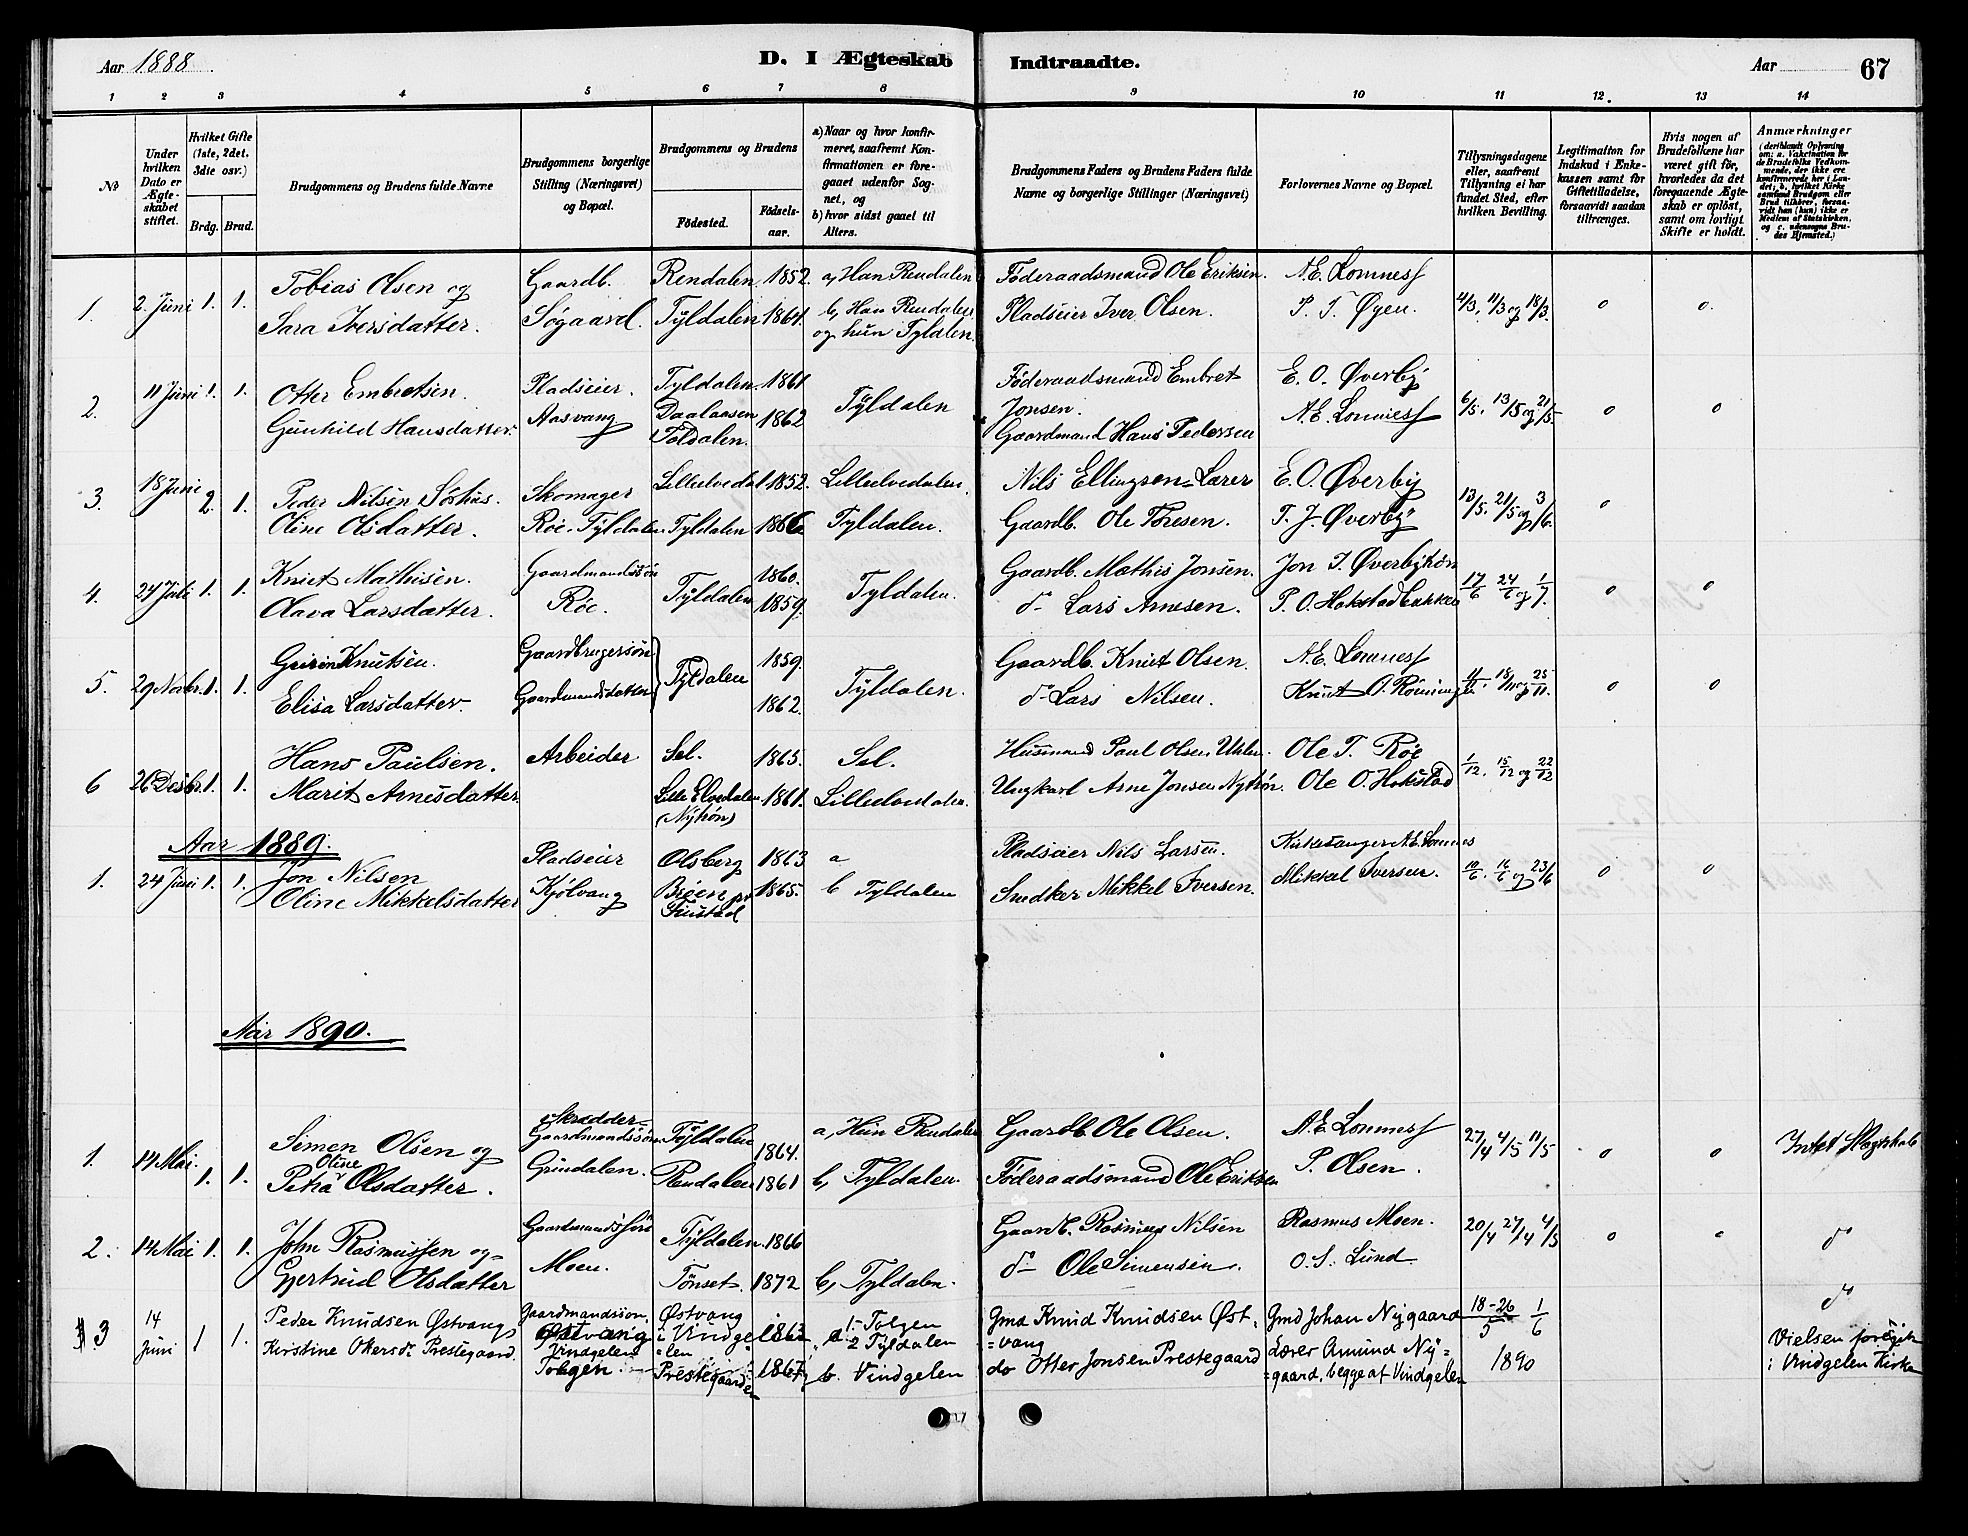 Aar 1888
D. I Ægteskab Indtraadte.
Aar
67
1 2 3 4 5 6 7 8 9 10 11 12. 13 14
No
Under hvilken Dato er Ægteskabet stiftet.
Hvilket Gifte (1ste, 2det, 3die osv.)
Brdg. Brud.
Brudgommens og Brudens fulde Navne
Brudgommens borgerlige Stilling (Næringsvei) og Bopæl.
Brudgommens og Brudens
Fødested.
Fødselsaar.
a) Naar og hvor konfirmeret, saafremt Konfirmationen er foregaaet udenfor Sognet, og
b) hvor sidst gaaet til Alters.
Brudgommens Faders og Brudens Faders fulde Navne og borgerlige Stillinger (Næringsvei)
Forlovernes Navne og Bopæl.
Tillysningsdagene eller, saafremt Tillysning ei har fundet Sted, efter hvilken Bevilling.
Legitimation for Indskud i Enkekassen samt for Giftetilladelse, forsaavidt saadan tiltrænges.
Hvis nogen af Brudefolkene har været gift før, hvorledes da det foregaaende Ægteskab er opløst, samt om lovligt Skifte er holdt.
Anmærkninger
(deriblandt Oplysning om: a. Vakcination for de Brudefolks Vedkommende, der ikke ere konfirmerede her i Landet; b. hvilket Kirkesamfund Brudgom eller Brud tilhører, forsaavidt han (hun) ikke er Medlem af Statskirken, og c. udensogns Brudes Hjemsted.)
1. 2. Juni 1. 1. Tobias Olsen og Gaardb. Rendalen 1852. a, Han Rendalen Føderaadsmand Ole Eriksen. A. E. Lomness 4/3, 11/3 og 18/3. 0 0.
Sara Iversdatter. Søgaard. Tyldalen 1864. b, Han Rendalen Pladseier Iver Olsen. P. T. Øyen.
og hun Tyldalen.
2. 11 Juni 1. 1. Otter Embretsen. Pladseier. Tyldalen 1861 Tyldalen Føderaadsmand Embret E. O. Øverby 6/5. 13/5 og 21/5. 0 0
Aasvang Daalaasen 1862 Jonsen. A. E. Lomness
Gunhild Hansdatter. Toldalen. Gaardmand Hans Pedersen
3. 18 Juni 2. 1. Peder Nilsen Sørhus. Skomager Lilleelvedal 1852. Lilleelvedalen. Nils Ellingsen Lærer E. O. Øverby 13/5. 21/5 og 3/6. 0
Oline Olsdatter. Røe. Tyldalen Tyldalen 1866 Tyldalen. Gaardb. Ole Toresen. T. J. Øverby
4. 24 Juli 1. 1. Knut Mathisen. Gaardmandssøn Tyldalen 1860. Tyldalen. Gaardb. Mathis Jonsen. Jon I. Øverbyhøn 17/6 24/6 og 1/7. 0 0
Olava Larsdatter. Røe. 1859. do Lars Arnesen. P. O. Hokstadbakken
5. 29 Novbr. 1. 1. Knutsen. Gaardbrugersøn Tyldalen 1859. Tyldalen. Gaardb. Knut Olsen. A. E. Lomness 11/11. 18/11 og 25/11. 0 0
Elisa Larsdatter. Gaardmandsdatter 1862. do Lars Nilsen. Knut O. Røning
6 26 Desbr. 1. 1. Hans Paulsen. Arbeider Sel. 1865. Sel. Husmand Paul Olsen Ulen. Ole T. Røe 1/12. 15/12 og 22/12
Marit Arnesdatter Lille Elvedalen 1861. Lilleelvedalen. Ungkarl Arne Jonsen Nytrøn. Ole O. Hokstad
(Nytrøn)
Aar 1889.
1. 24 Juni 1. 1. Jon Nilsen Pladseier Olsberg 1863 a Pladseier Nils Larsen. Kirkesanger A. E. Lomnes 10/6. 16/6 og 23/6 0 0
Oline Mikkelsdatter Kjølvang Brøen 1865. b Tyldalen Snedker Mikkel Iversen. Mikkel Iversen.
Aar 1890.
1. 14 Mai. 1. 1. Simen Olsen og Skrædder- Gaardmandssøn Tyldalen 1864. a, Hun Rendalen Gaardb. Ole Olsen. A. E. Lomness 27/4 4/5 11/5 0 0 Intet Slægtskab
Petra Oline Olsdatter. Grindalen. Rendalen 1861 b, Tyldalen. Føderaadsmand Ole Eriksen P. Olsen.
2. 14 Mai 1. 1. John Rasmussen og Gaardmandssøn Tyldalen. 1866 Gaardb. Rasmus Nilsen Rasmus Moen. 20/4 27/4 4/5 0 0 do
Gjertrud Olsdatter Moen. Tønset. 1872 b, Tyldalen. do Ole Simensen. O. S. Lund.
3 14 Juni 1 1. Peder Knudsen Østvang Gaardmandssøn. Østvang 1863 1- Tolgen Gmd Knud Knudsen Øst= Gmd Johan Nygaard 18-26/5 1/6 do
Kirstine Ottersdr Prestegaard. Østvang i Vindge= a 2 Tyldalen =vang Lærer Amund Ny= 1890 Vielsen foregik
Vindgelen =len 1867 b. Vindgelen do Otter Jonsen Prestegaard =gaard, begge af Vindgelen i Vindgelen Kirke
Tolgen Prestegaarden